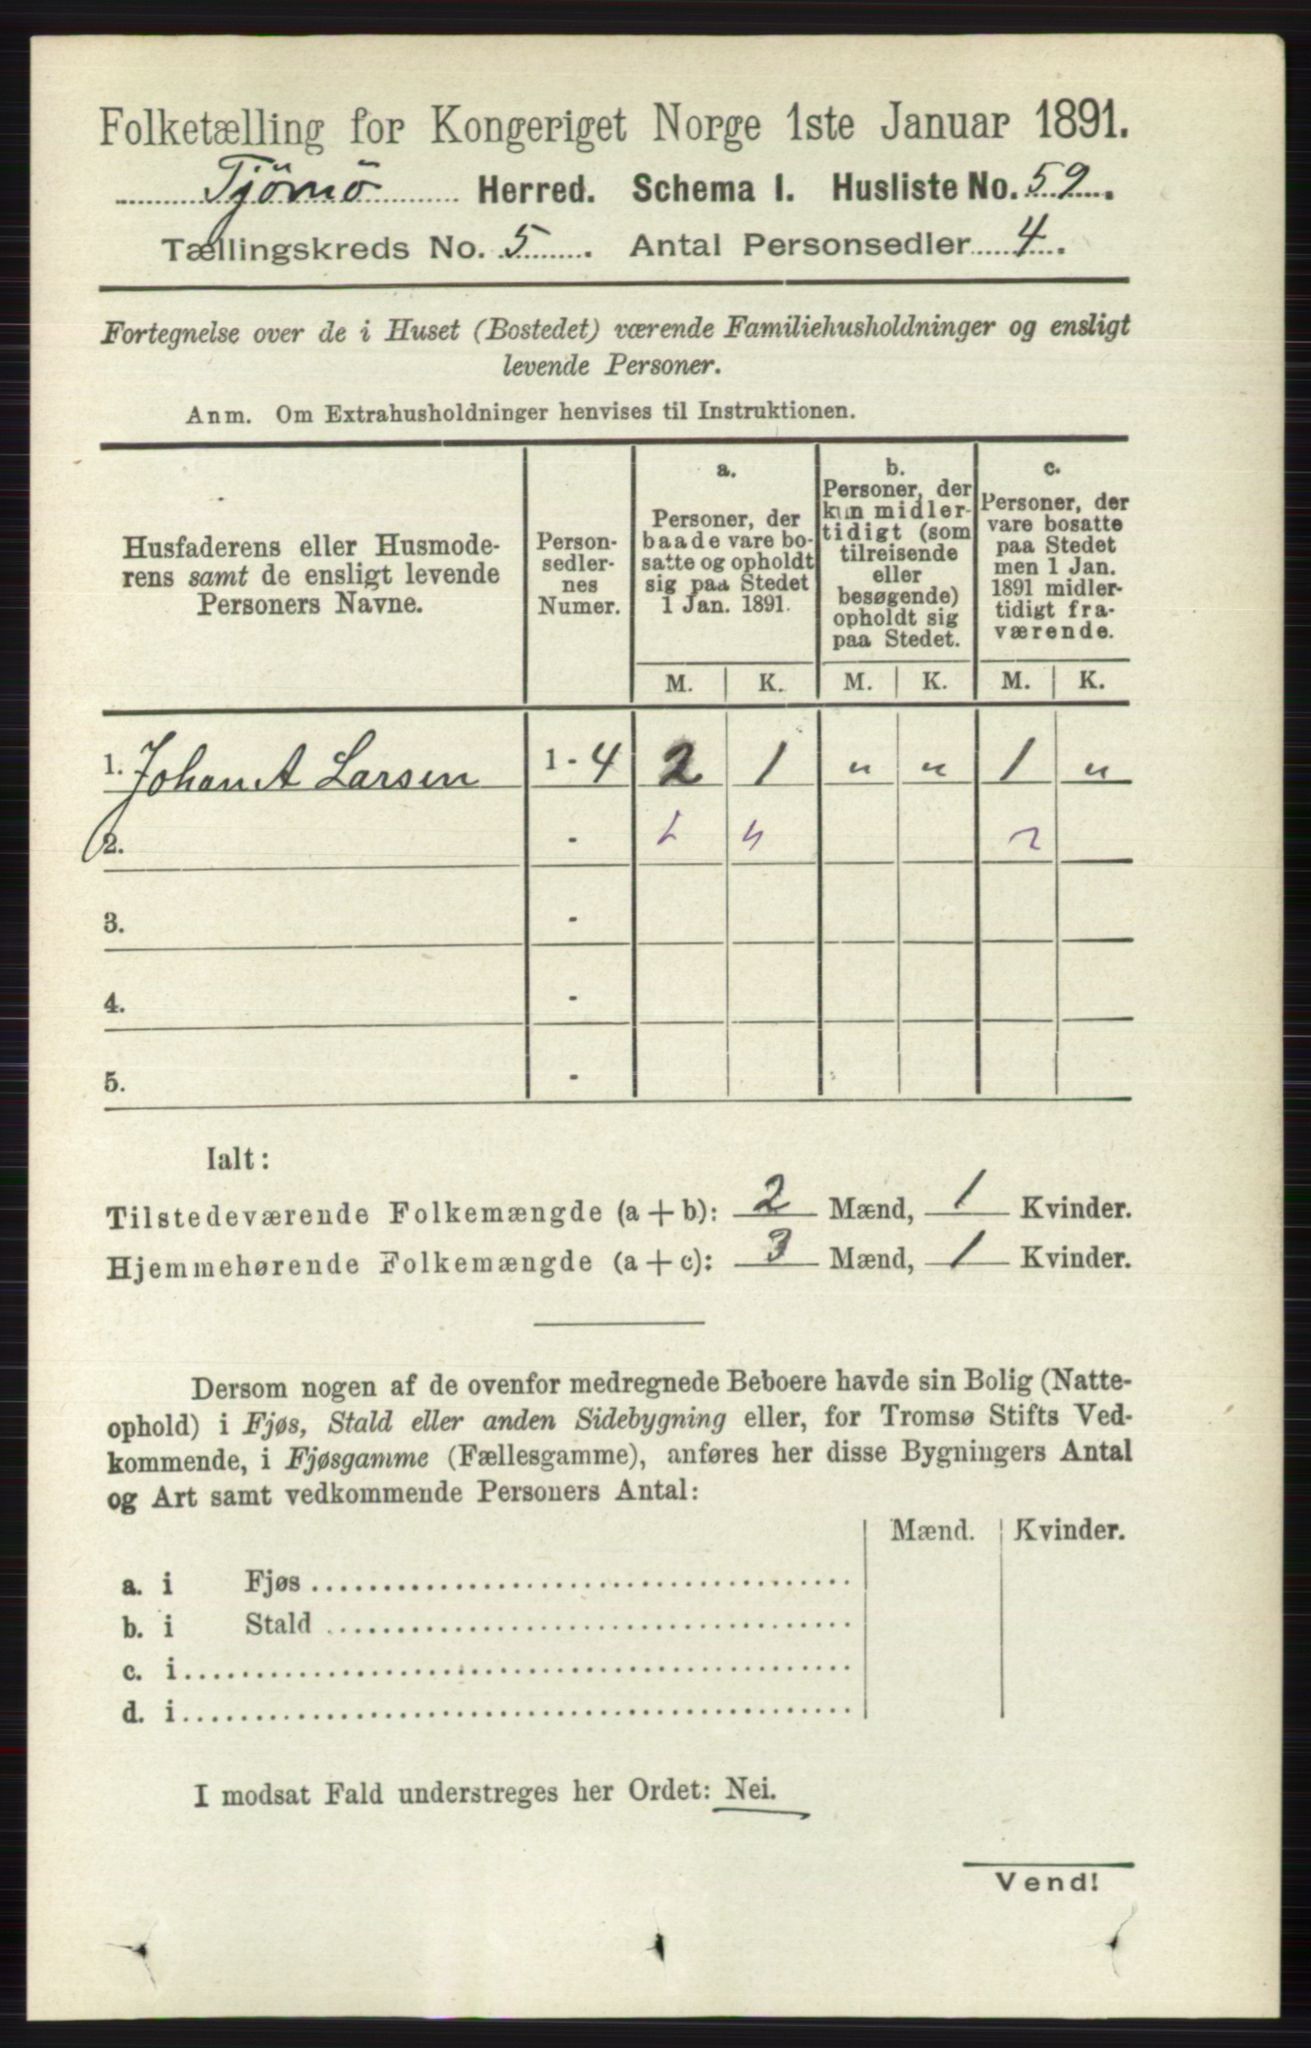 Folketælling for Kongeriget Norge 1ste Januar 1891.
Tjömö Herred. Schema I. Husliste No. 59.
Tællingskreds No. 5. Antal Personsedler 4.
Fortegnelse over de i Huset (Bostedet) værende Familiehusholdninger og ensligt
levende Personer.
Anm. Om Extrahusholdninger henvises til Instruktionen.
Husfaderens eller Husmode-
rens samt de ensligt levende
Personers Navne.
Person-
sedler-
nes
Numer.
a.
Personer, der
baade vare bo-
satte og opholdt
sig paa Stedet
1 Jan. 1891.
b.
Personer, der
kun midler-
tidigt (som
tilreisende
eller
besøgende)
opholdt sig
paa Stedet.
c.
Personer, der
vare bosatte
paa Stedet
men 1 Jan.
1891 midler-
tidigt fra-
værende.
M. K. M. K. M. K.
1. Johan A Larsen 1 - 4 2 1 " " 1 "
2. -
3. -
4. -
5. -
Ialt:
Tilstedeværende Folkemængde (a + b): 2 Mænd, 1 Kvinder.
Hjemmehørende Folkemængde (a + c): 3 Mænd, 1 Kvinder.
Dersom nogen af de ovenfor medregnede Beboere havde sin Bolig (Natte-
ophold) i Fjøs, Stald eller anden Sidebygning eller, for Tromsø Stifts Ved-
kommende, i Fjøsgamme (Fællesgamme), anføres her disse Bygningers Antal
og Art samt vedkommende Personers Antal:
Mænd. Kvinder.
a. i Fjøs
b. i Stald
c. i
d. i
I modsat Fald understreges her Ordet: Nei.
Vend!